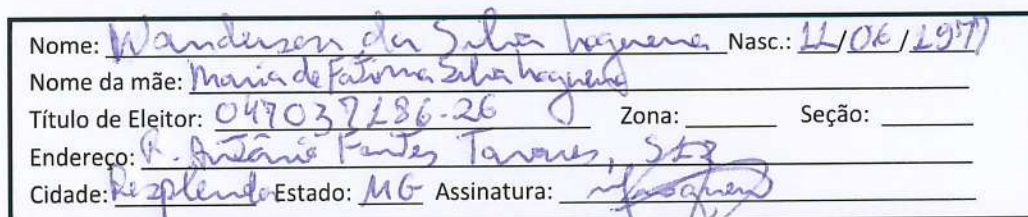 Nome: Wanderson da Silva Nogueira Nasc.: 11/06/1977
Nome da mãe: Maria de Fatima Silva Nogueira
Título de Eleitor: 047037186-26 Zona: Seção:
Endereço: R. Antânio Fontes Tavares,
Cidade: Resplendor Estado: MG Assinatura: